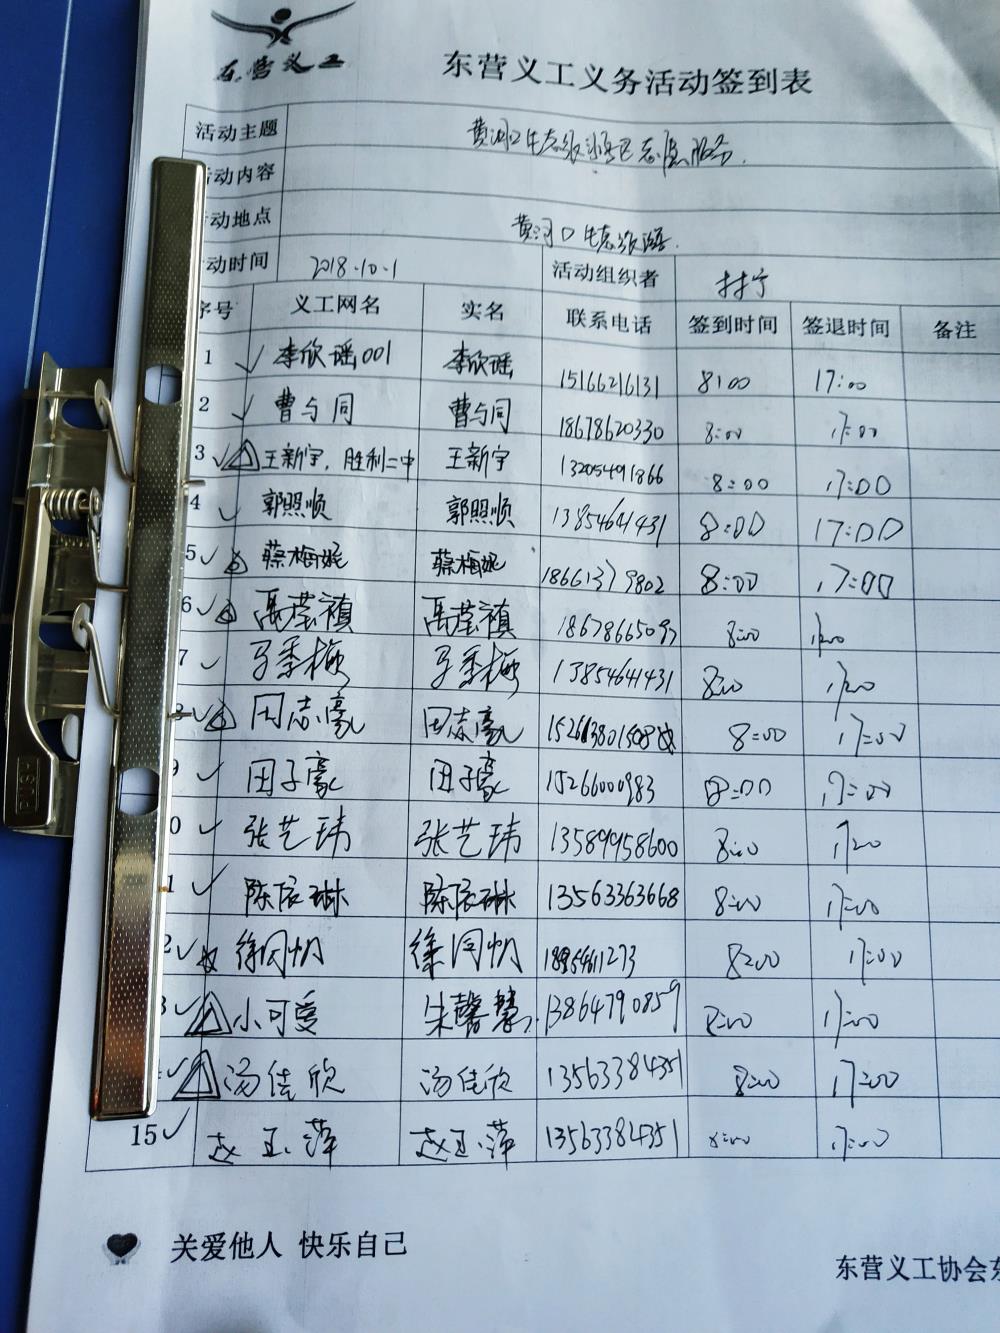 东营义工
东营义工义务活动签到表
活动主题 黄河口生态旅游区志愿服务.
动内容
动地点 黄河口生态旅游.
动时间 2018.10.1 活动组织者
序号 义工网名 实名 联系电话 签到时间 签退时间 备注
1 李欣瑶001 李欣瑶 15166216131 8:00 17:00
2 曹与同 曹与同 18678620330 8:00 17:00
3 王新宇,胜利二中 王新宇 13205491866 8:00 17:00
4 郭照顺 郭照顺 13854641431 8:00 17:00
5 蔡梅妮 蔡梅妮 18661379802 8:00 17:00
6 禹莹禛 禹莹禛 18678665097 8:00 17:00
7 马季梅 马季梅 13854641431 8:00 17:00
田志豪 田志豪 8:00 17:00
9 田子豪 田子豪 15266000983 8:00 17:00
0 张艺玮 张艺玮 13589958600 8:00 17:00
1 陈辰琳 陈辰琳 13563363668 8:00 17:00
2 徐同帆 徐同帆 8:00 17:00
3 小可爱 朱馨慧 13864790859 8:00 17:00
汤佳欣 汤佳欣 13563384351 8:00 17:00
15 赵玉萍 赵玉萍 13563384351 8:00 17:00
关爱他人 快乐自己
东营义工协会东